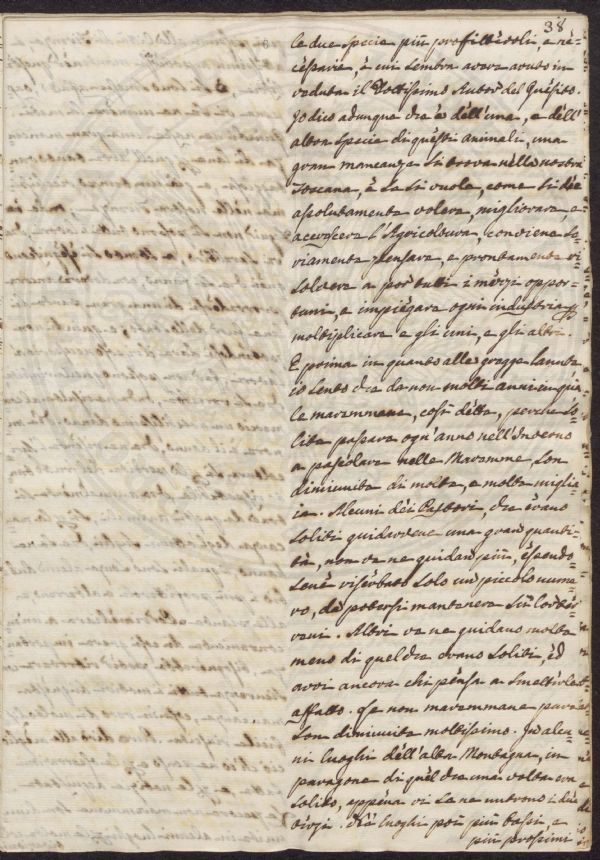 38
le due specie più profittevoli, e ne-
cessarie, è cui sembra avere avuto in
veduta il Dottissimo Autor del Quesito.
Io dico adunque che è dell'una, e dell'
altra specie di questi animali, una
gran mancanza si trova nella nostra
Toscana, è se si vuole, come si dèe
assolutamente volere, migliorare, e
accrescere l'Agricoltura, conviene se-
riamente pensare, e prontamente ri-
solvere a por tutti i mezzi oppor-
tuni, e impiegare ogni industria p
moltiplicare e gli uni, e gli altri.
E prima in quanto alle gregge lanute
io sento che da non molti anni in quà
le maremmane, così dette, perchè so-
lite passare ogn'anno nell'Inverno
a pascolare nelle Maremme, son
diminuite di molte, e molte miglia-
ia. Alcuni dei Pastori, che erano
soliti guidarvene una gran quanti-
tà, non ve ne guidan più, essendo-
sene riserbato solo un piccolo nume-
ro, da potersi mantenere su'i lor ter-
reni. Altri ve ne guidano molte
meno di quel che erano soliti, ed
avvi ancora chi pensa a smetterle
affatto. Le non maremmane pure
son diminuite moltissimo. In alcu-
ni luoghi dell'alta Montagna, in
paragone di quel che una volta era
solito, appena vi se ne nutrono i due
terzi. Nei luoghi poi più bassi, e
più prossimi